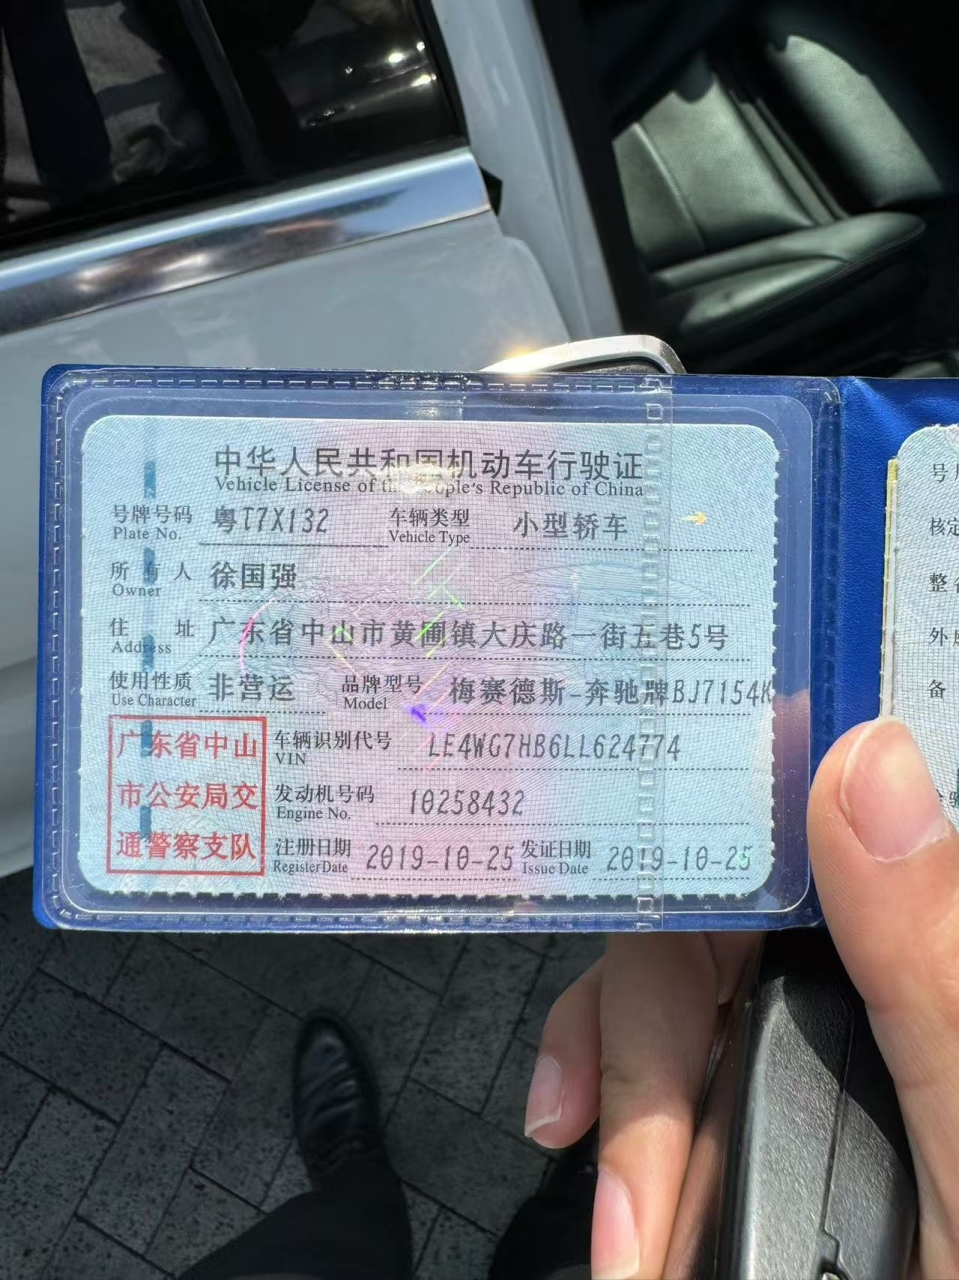 中华人民共和国机动车行驶证
Vehicle License of the People's Republic of China
号牌号码 粤T7X132 车辆类型 小型轿车
Plate No. Vehicle Type
所有人 徐国强
Owner
住址 广东省中山市黄圃镇大庆路一街五巷5号
Address
使用性质 非营运 品牌型号 梅赛德斯-奔驰牌BJ7154K
Use Character Model
广东省中山 车辆识别代号 LE4WG7HB6LL624774
VIN
市公安局交 发动机号码 10258432
Engine No.
通警察支队 注册日期 2019-10-25 发证日期 2019-10-25
Register Date Issue Date
号
核定
整备
外
备